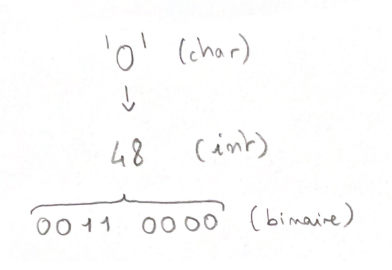 '0' (char)
↓
48 (int)
0011 0000 (binaire)